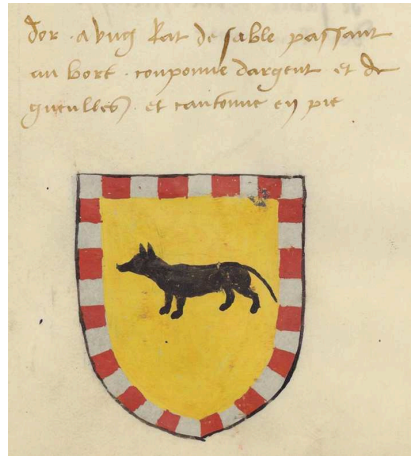 dor · a ung Rat de sable passant
au bort · couponne dargent et de
gueulles · et cantonne en pie